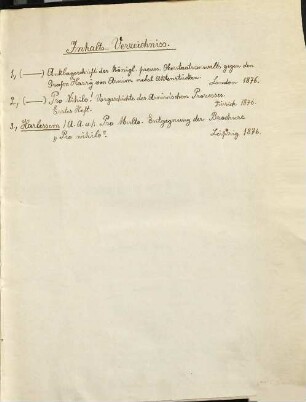 Inhalts-Verzeichniss.
1, (——) Anklageschrift der Königl. preuss. Oberstaatsanwalts gegen den
Grafen Harry von Arnim nebst Aktenstücken. London 1876.
2, (——) Pro Nihilo! Vorgeschichte des Arnim'schen Processes.
Erstes Heft. Zürich 1876.
3, Karlesson / A. A. v /. Pro Multo. Entgegnung der Brochure
„Pro nihilo". Leipzig 1876.